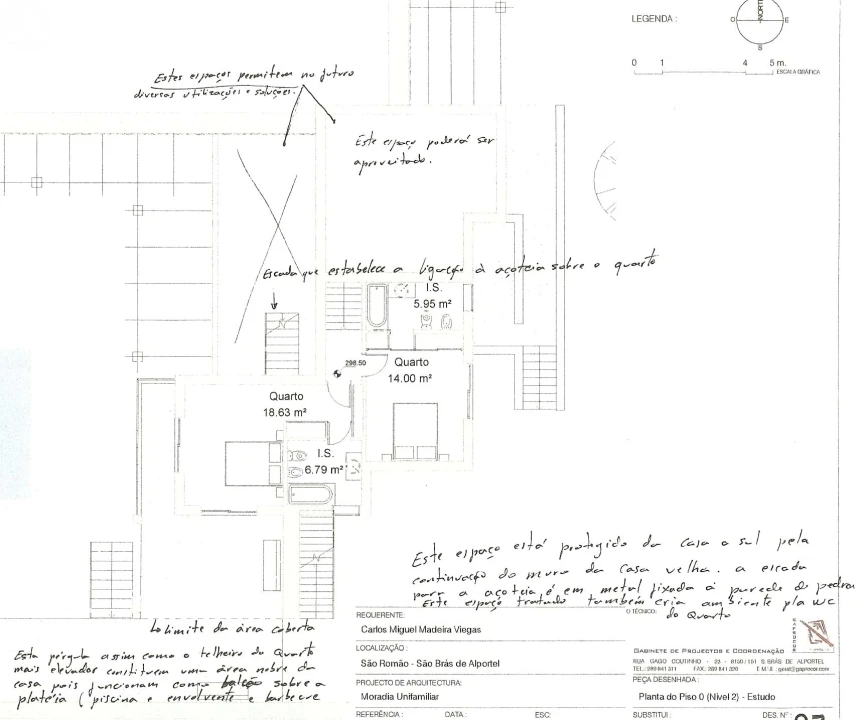 LEGENDA :
NORTE
O
E
S
0 1 4 5 m.
ESCALA GRÁFICA
Estes espaços permitem no futuro
diversas utilizações e soluções.
Este espaço poderá ser
aproveitado.
Escada que estabelece a ligação à açoteia sobre o quarto
I.S.
5.95 m²
298.50
Quarto
14.00 m²
Quarto
18.63 m²
I.S.
6.79 m²
Este espaço está protegido da casa a sul pela
continuação do muro da casa velha. a escada
para a açoteia é em metal fixada à parede de pedra
Este espaço tratado também cria ambiente p/a WC
do Quarto
limite da área coberta
Esta pérgula assim como o telheiro do Quarto
mais elevados constituem uma área nobre da
casa pois funcionam como balcão sobre a
plateia (piscina e envolvente e barbecue
REQUERENTE:
Carlos Miguel Madeira Viegas
LOCALIZAÇÃO :
São Romão - São Brás de Alportel
PROJECTO DE ARQUITECTURA:
Moradia Unifamiliar
REFERÊNCIA : DATA : ESC:
O TÉCNICO:
GAPROCOR
GABINETE DE PROJECTOS E COORDENAÇÃO
RUA GAGO COUTINHO - 23 - 8150/151 S. BRÁS DE ALPORTEL
TEL.: 289 841 311 FAX: 289 841 320 E M´S : geral@gaprocor.com
PEÇA DESENHADA :
Planta do Piso 0 (Nível 2) - Estudo
SUBSTITUI : DES. Nº :